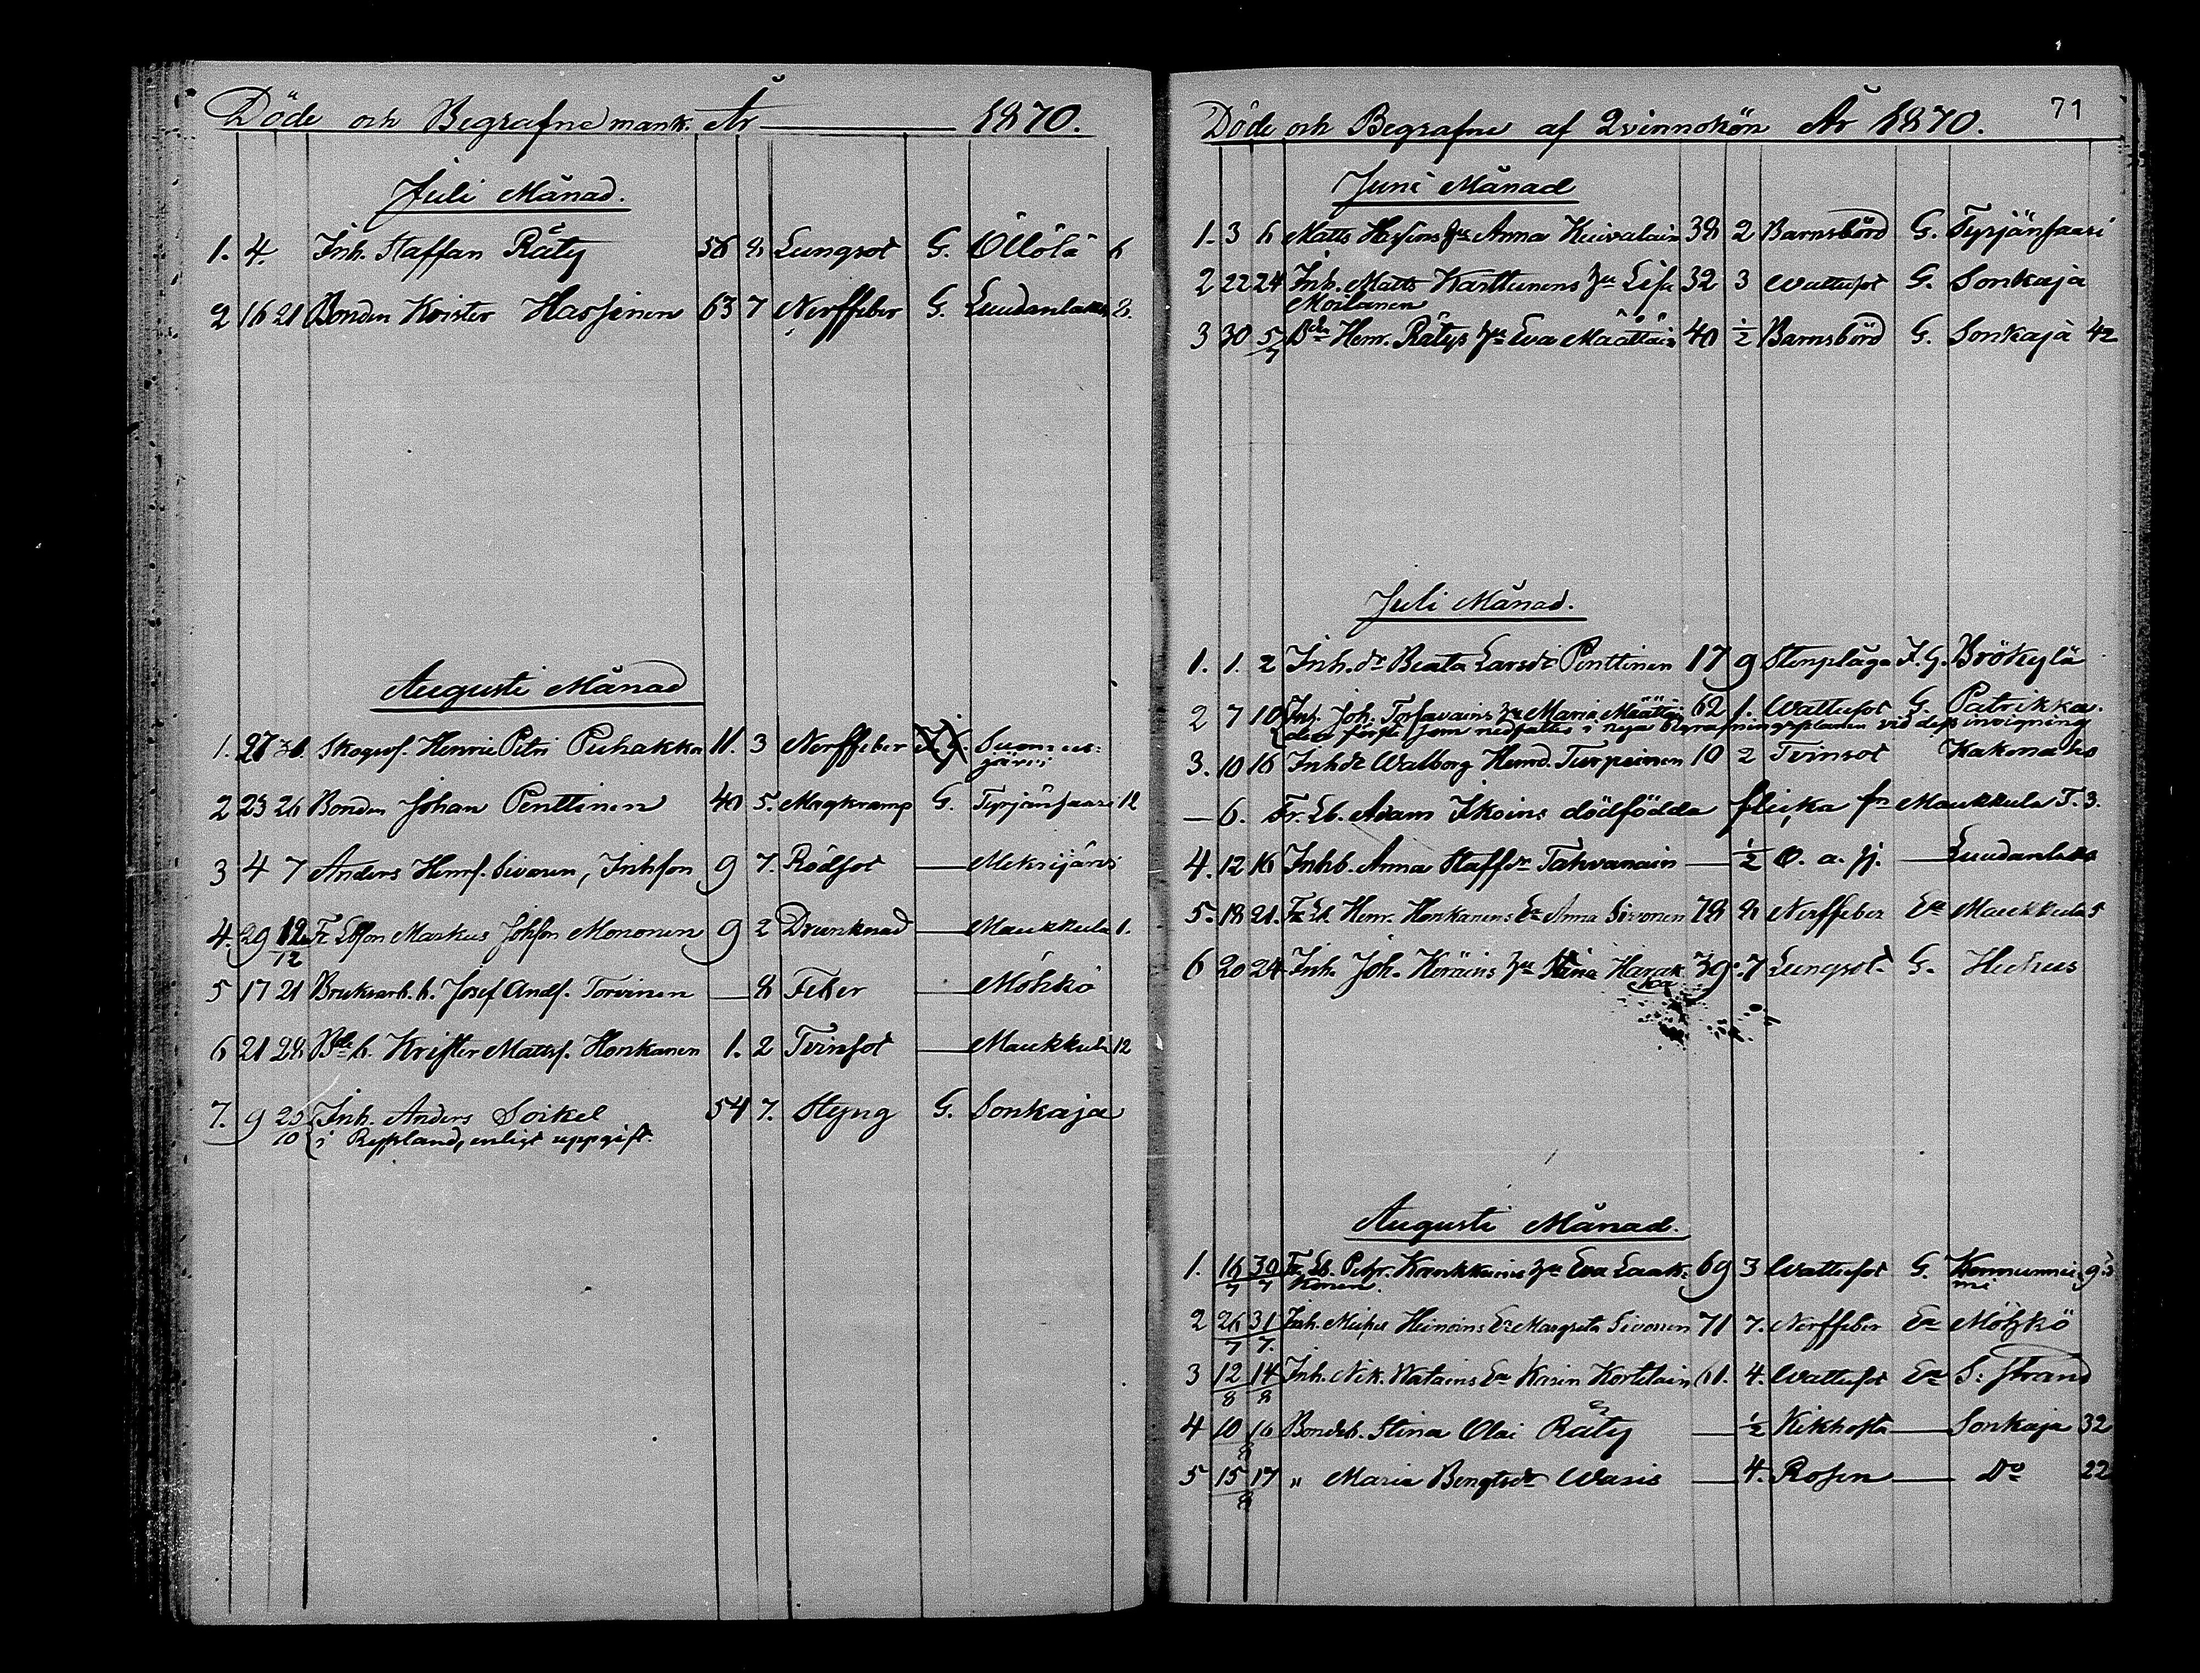 Döde och Begrafne mank. År 1870.
Juli Månad.
1. 4. Inh. Staffan Räty 56 8 Lungsot G. Öllölä 6
2 16 21 Bonden Krister Hassinen 63 7 Nerffeber G. Luudanlaks 2.
Augusti Månad
1. 27 Skogsv. Henric Petri Puhakka 11. 3 Nerffeber Suomus=
järvi
2 23 26 Bonden Johan Penttinen 40 5. Magkramp G. Tyrjänsaari 12
3 4 7 Anders Henrs. Sivonen, Inhson 9 7. Rödsot — Mekrijärvi
4. 29 12 Fr Lbson Markus Johson Mononen 9 2 Drunknad — Maukkula 1.
12
5 17 21 Bruksarb. b. Josef Ands. Torvinen — 8 Feber — Möhkö
6 21 28 Bde b. Krister Matts. Honkanen 1. 2 Tvinsot — Maukkula 12
7. 9 25 Inh. Anders Soikel 54 7. Styng G. Sonkaja
10 i Ryssland, enligt uppgift.
71
Döde och Begrafne af Qvinnokön År 1870.
Juni Månad
1. 3 6 Matts Hassins hu Anna Kuivalain 38 2 Barnsbörd G. Tyrjänsaari
2 22 24 Inh. Matts Karttunens hu Lisa 32 3 Wattusot G. Sonkaja
Moilanen
3 30 5/7 Bdn Henr. Rätys hu Eva Määttäin 40 ½ Barnsbörd G. Sonkaja 42
Juli Månad.
1. 1. 2 Inh. dr Beata Larsdr Penttinen 17 9 Stenplåga F. G. Brökylä
2 7 10 Inh. Joh. Torfvains hu Maria Määttäin 62 1. Wattusot G. Patrikka.
den förste som nedsattes i nya begrafningsplanen vid dess invigning
3. 10 16 Inhdr Walborg Henrd. Turpeinen 10 2 Tvinsot Kakonaho
— 6. Fr. Lb. Adam Ikoins dödfödda flicka fr Maukkula T. 3.
4. 12 16 Inhb. Anna Staffdr Tahvanain — ½ O. a. sj. — Luudanlaks
5. 18 21. Fr Lb. Henr. Honkanens Ea Anna Sivonen 78 8 Nerffeber Ea Maukkula 5
6 20 24 Inh. Joh. Keräins hu Stina Harak 39. 7 Lungsot. G. Huhus
ka
Augusti Månad.
1. 16 30 Fr Lb. Petr. Kankkuins hu Eva Laak= 69 3 Wattusot G.
7 7 konen.
2 26 31 Inh. Ea Margreta Sivonen 71 7. Nerffeber Ea Möhkö
7 7.
3 12 14 Inh. Nik. Watains Ea Karin Kortelain 61. 4. Wattusot Ea S. Strand
8 8
4 10 16 Bondeb. Stina Olai Räty — ½ Kikhosta — Sonkaja 32
8
5 15 17 " Maria Bengtsdr Waris — 4. Rosen — Do 22
8